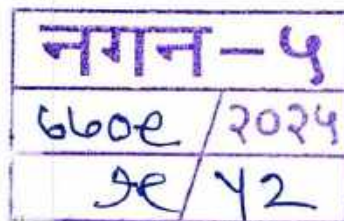 नगन-५
७७०९/२०२५
३९/५२